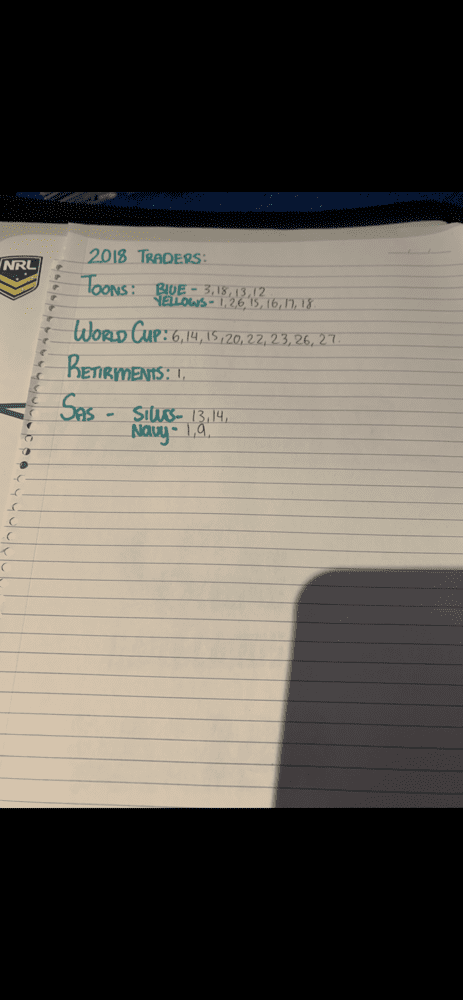 NRL
2018 TRADERS:
TOONS: BLUE - 3,18,13,12
YELLOWS - 1,2,6,15,16,17,18
WORLD CUP: 6,14,15,20,22,23,26,27.
RETIRMENTS: 1.
SAS - SILVRS- 13,14,
NAVY- 1,9.